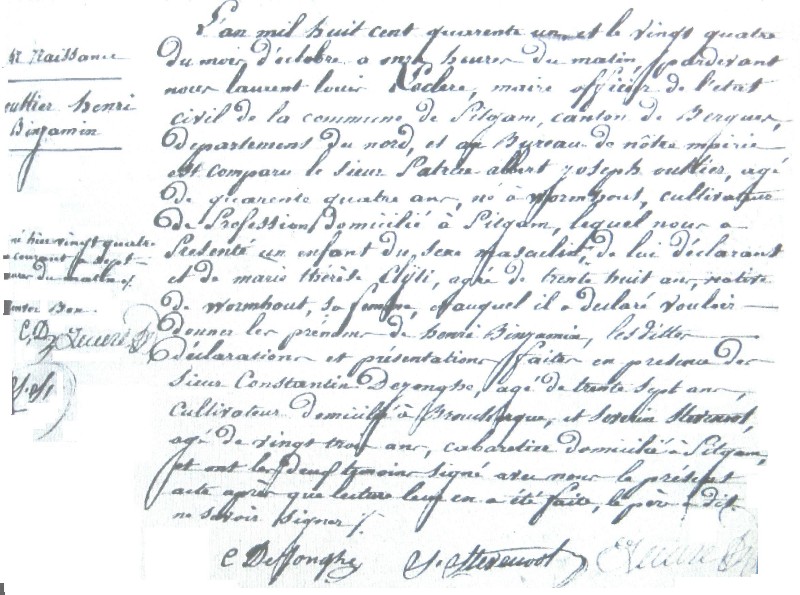 Naissance
outtier henri
Binjamin
né hier vingt quatre
courant a sept
heures du matin
Bon
C, D
S. St
L'an mil huit cent quarente un et le vingt quatre
du mois d'octobre a onze heures du matin, pardevant
nous laurent louis Leclerc, maire officier de l'état
civil de la commune de Pitgam, canton de Bergues,
departement du nord, et au Bureau de nôtre mairie
est comparu le sieur Patrice albert joseph outtier, agé
de quarente quatre ans, né a wormhout, cultivateur
de Profession domicilié à Pitgam, lequel nous a
Presenté un enfant du sexe masculin, de lui déclarant
et de marie thérèse agée de trente huit ans, native
de wormhout, sa femme, et auquel il a declaré vouloir
donner les prénoms de henri Binjamin, les dittes
déclarations et présentations faites en presence des
sieur Constantin Dezonghe, agé de trente sept ans,
cultivateur domicilié à Brouckerque, et Severin Stevenoot,
agé de vingt trois ans, cabaretier domicilié à Pitgam,
et ont les deux temoins signé avec nous le présent
acte après que lecture leur en a été faite, le père a dit
ne savoir signer
C Dejonghe S. Stevenoot